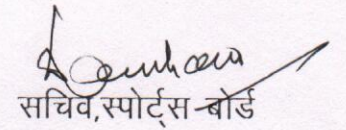 सचिव,स्पोर्ट्स-बोर्ड